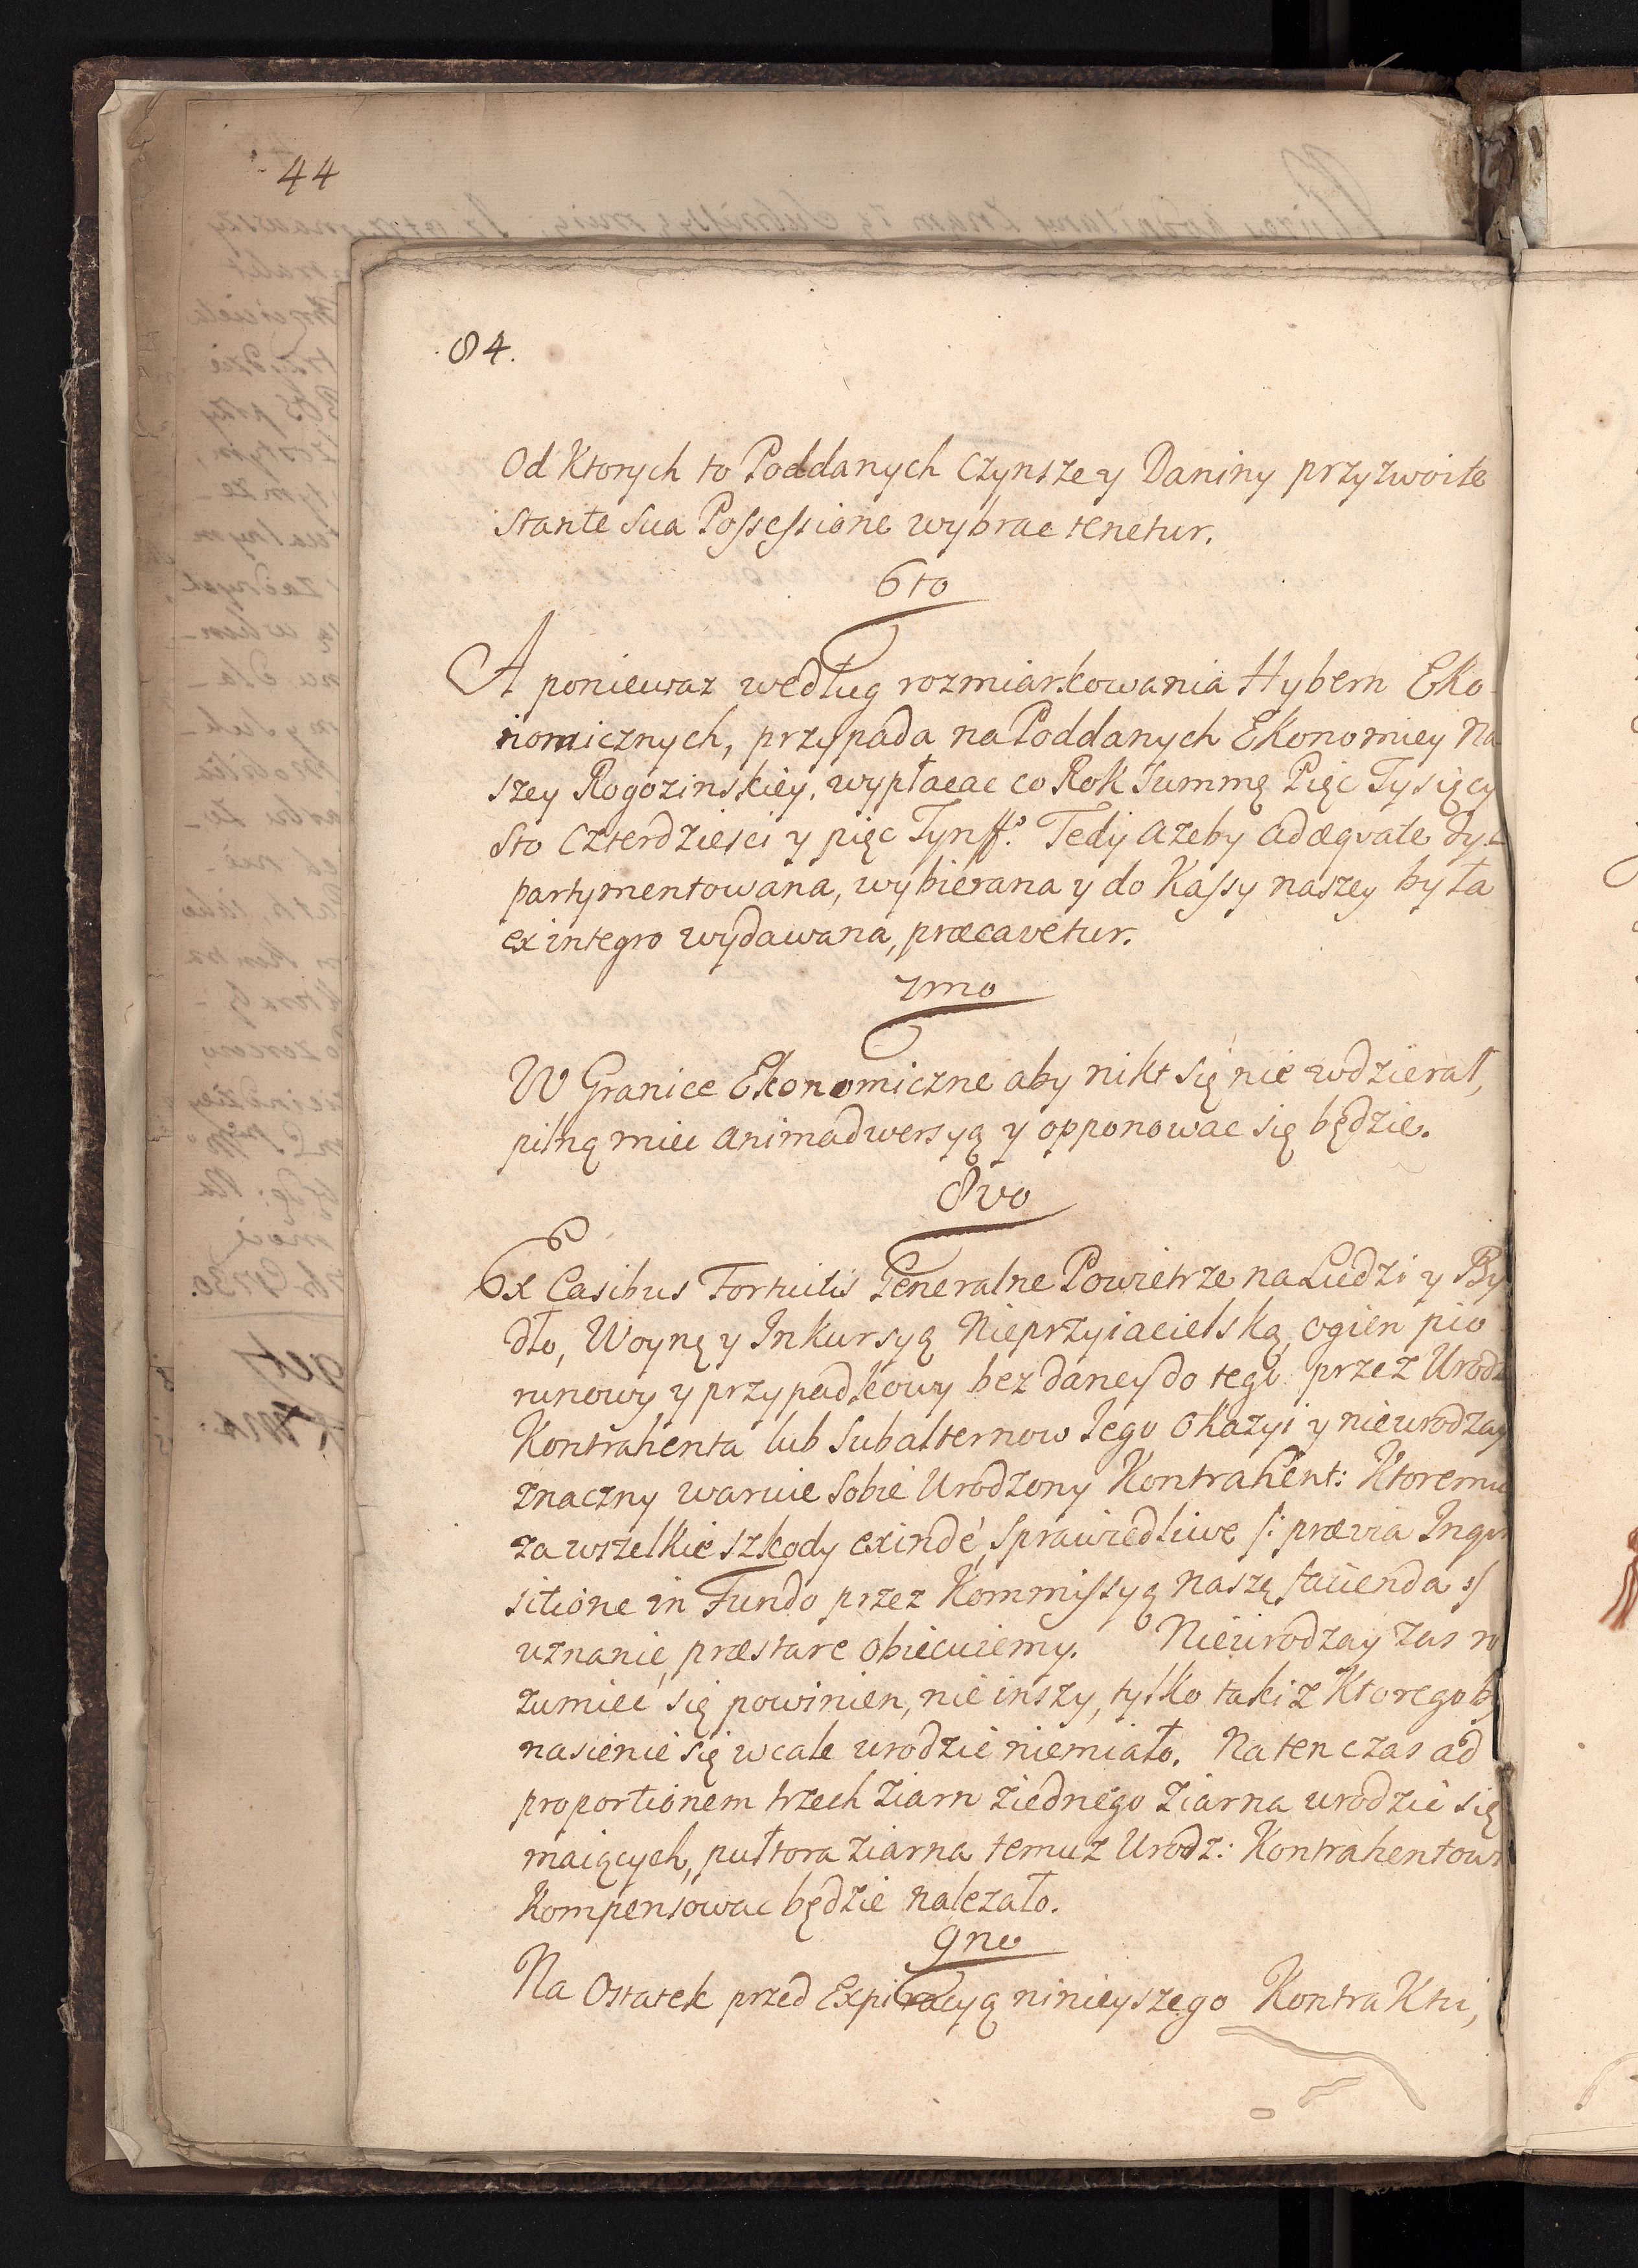 44
84.
Od Ktorych to Poddanych Czynsze y Daniny przyzwoite
stante sua Possessione wybrac tenetur.
6to
A poniewaz według rozmiarkowania Hybern Eko
nomicznych, przypada na Poddanych Ekonomiey Na
szey Rogozinskiey, wypłacac co Rok Summę Pięc Tysięcy
Sto Czterdziesci y pięc Tynff. Tedy azeby adæqvate dys
partymentowana, wybierana y do Kassy naszey była
ex integro wydawana, præcavetur.
7mo
W Granice Ekonomiczne aby nikt się nie wdzierał,
pilną miec animadwersyą y opponowac się będzie.
8vo
Ex Casibus Fortuitis Generalne Powietrze na Ludzi y By
dło, Woynę y Inkursyą Nieprzyiacielską, ogien pio
runowy y przypadkowy bez daney do tego przez Urodz
Kontrahenta lub Subalternow Jego Okazyi y nieurodzay
znaczny waruie sobie Urodzony Kontrahent: Ktoremu
za wszelkie szkody exinde, sprawiedliwe /: prævia Inqvi
sitione in Fundo przez Kommissyą naszę facienda :/
uznanie, præstare obiecuiemy. Nieurodzay zas ro
zumiec się powinien, nie inszy, tylko taki z Ktorego by
nasienie się wcale urodzic niemiało. Na ten czas ad
proportionem trzech ziarn ziednego ziarna urodzic się
maiących, pułtora ziarna temuz Urodz: Kontrahentowi
Kompensowac będzie nalezało.
9no
Na Ostatek przed Expiracyą ninieyszego Kontraktu,